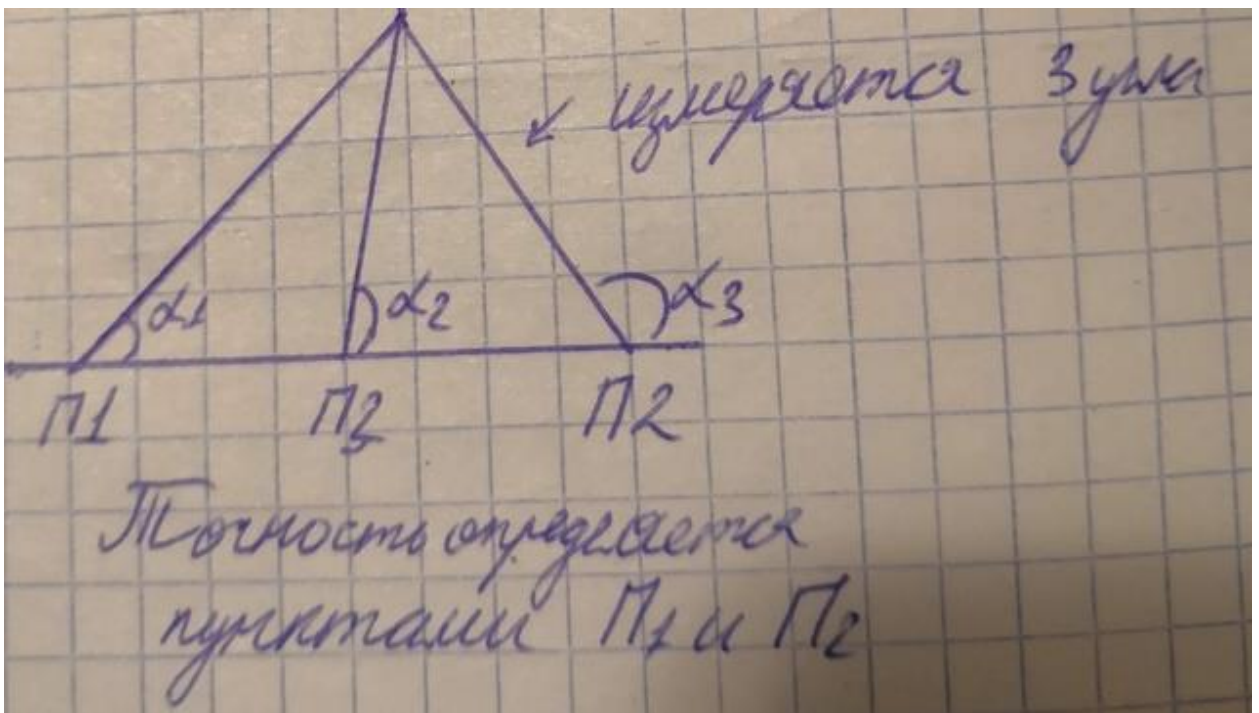 измеряется 3 угла
α1 α2 α3
П1 П3 П2
Точность определяется
пунктами П1 и П2